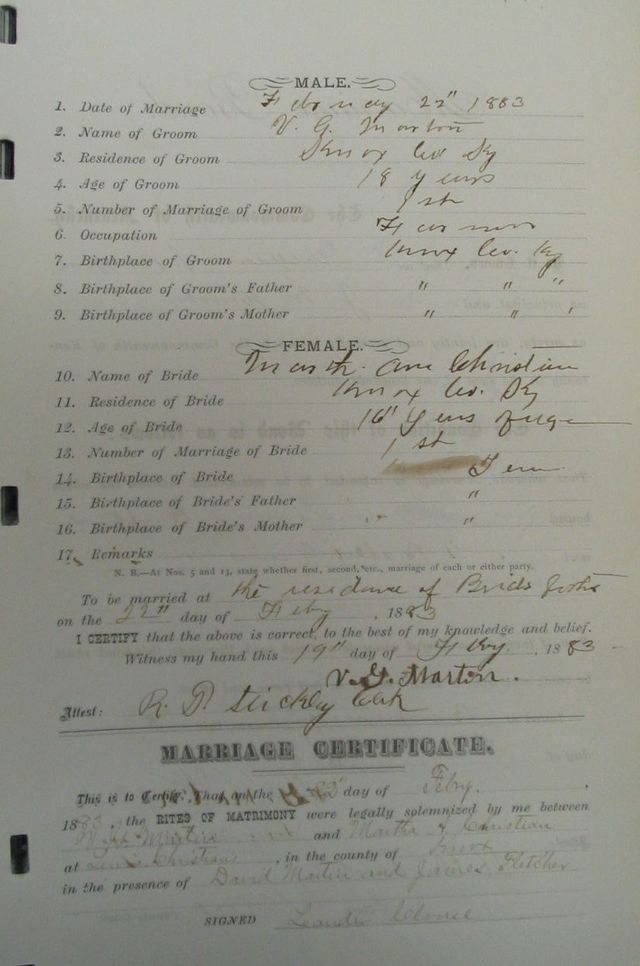 MALE.
1. Date of Marriage February 22" 1883
2. Name of Groom V. G. Martin
3. Residence of Groom Knox Co. Ky
4. Age of Groom 18 years
5. Number of Marriage of Groom 1st
6. Occupation Farmer
7. Birthplace of Groom Knox Co. Ky
8. Birthplace of Groom's Father " " "
9. Birthplace of Groom's Mother " " "
FEMALE.
10. Name of Bride Marth. Ann Christian
11. Residence of Bride Knox Co. Ky
12. Age of Bride 16" Years of age
13. Number of Marriage of Bride 1st
14. Birthplace of Bride Tenn
15. Birthplace of Bride's Father "
16. Birthplace of Bride's Mother "
17. Remarks
N. B.—At Nos. 5 and 13, state whether first, second, etc., marriage of each or either party.
To be married at the residence of Brids
on the 22" day of Feby , 1883
I CERTIFY that the above is correct, to the best of my knowledge and belief.
Witness my hand this 19" day of Feby , 1883
V. G. Martin.
Attest: Clk
MARRIAGE CERTIFICATE.
This is to Certify, That on the 22" day of Feby.
1883, the RITES OF MATRIMONY were legally solemnized by me between
Martin and Martha Christian
at Christians , in the county of Knox
in the presence of David Martin and James Fletcher
SIGNED Leander